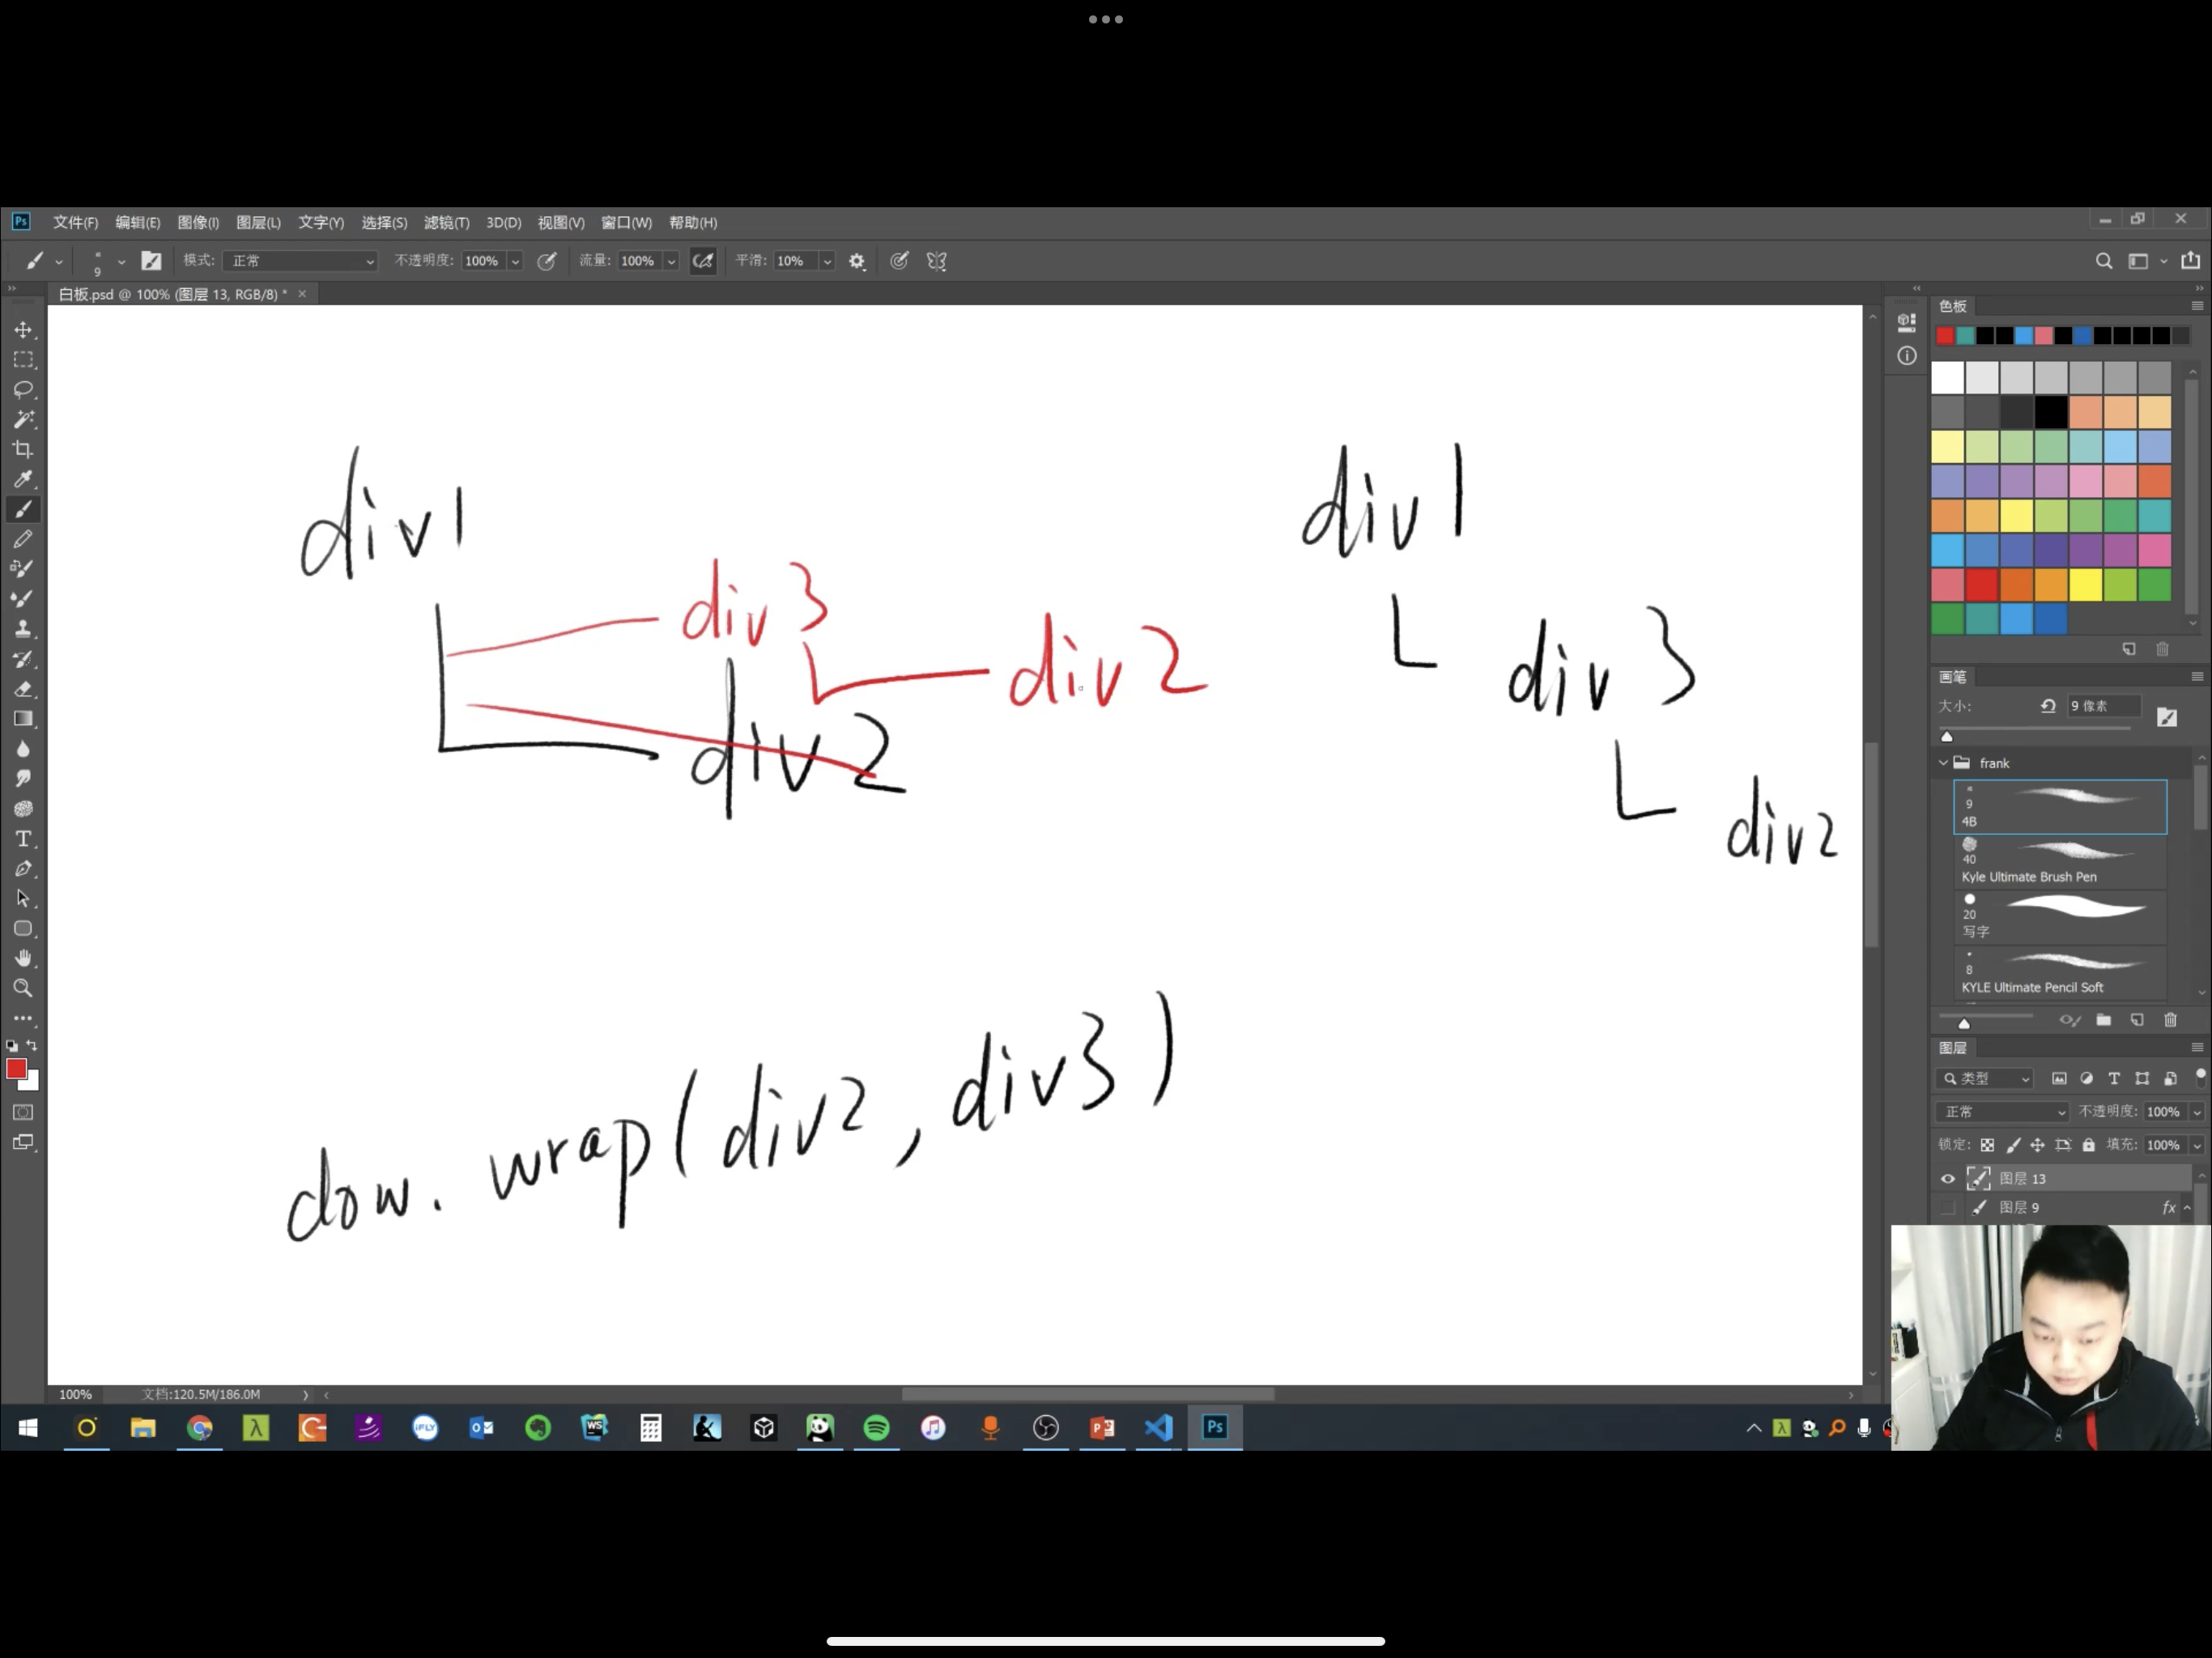 Ps 文件(F) 编辑(E) 图像(I) 图层(L) 文字(Y) 选择(S) 滤镜(T) 3D(D) 视图(V) 窗口(W) 帮助(H)
9 模式: 正常 不透明度: 100% 流量: 100% 平滑: 10%
白板.psd @ 100% (图层 13, RGB/8) *
div1
div3
div2
div2
div1
div3
div2
dow. wrap(div2, div3)
色板
画笔
大小: 9 像素
frank
9
4B
40
Kyle Ultimate Brush Pen
20
写字
8
KYLE Ultimate Pencil Soft
图层
类型
正常 不透明度: 100%
锁定: 填充: 100%
图层 13
图层 9 fx
100% 文档:120.5M/186.0M
iFLY WS Ps